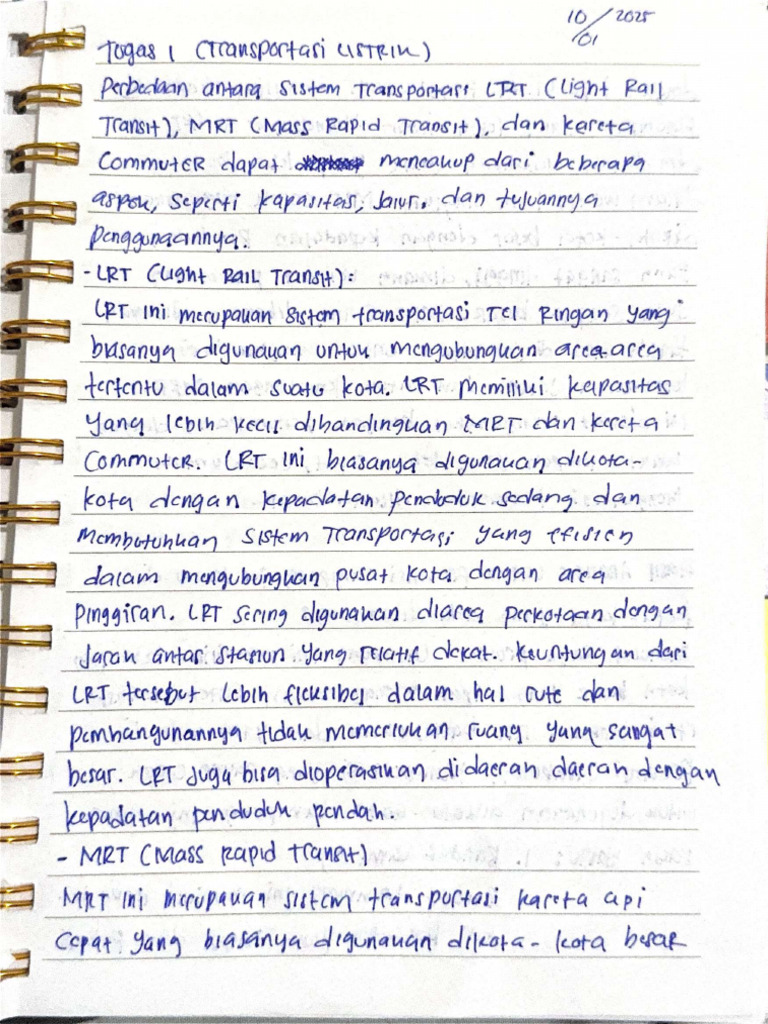 10/01 2025
Tugas 1 (Transportasi LISTRIK)
Perbedaan antara sistem Transportasi LRT (Light Rail
Transit), MRT (Mass Rapid Transit), dan kereta
Commuter dapat mencakup dari beberapa
aspek, seperti kapasitas, jalur, dan tujuannya
penggunaannya.
- LRT (Light Rail Transit):
LRT ini merupakan sistem transportasi rel Ringan yang
biasanya digunakan untuk mengubungkan area-area
tertentu dalam suatu kota. LRT memiliki kapasitas
yang lebih kecil dibandingkan MRT dan kereta
Commuter. LRT ini biasanya digunakan dikota-
kota dengan kepadatan penduduk sedang dan
membutuhkan sistem Transportasi yang efisien
dalam mengubungkan pusat kota dengan area
Pinggiran. LRT sering digunakan diarea perkotaan dengan
Jarak antar stasiun yang relatif dekat. keuntungan dari
LRT tersebut lebih fleksibel dalam hal rute dan
pembangunannya tidak memerlukan ruang yang sangat
besar. LRT juga bisa dioperasikan didaerah daerah dengan
kepadatan penduduk rendah.
- MRT (Mass Rapid Transit)
MRT ini merupakan sistem transportasi kareta api
Cepat yang biasanya digunakan dikota-kota besar